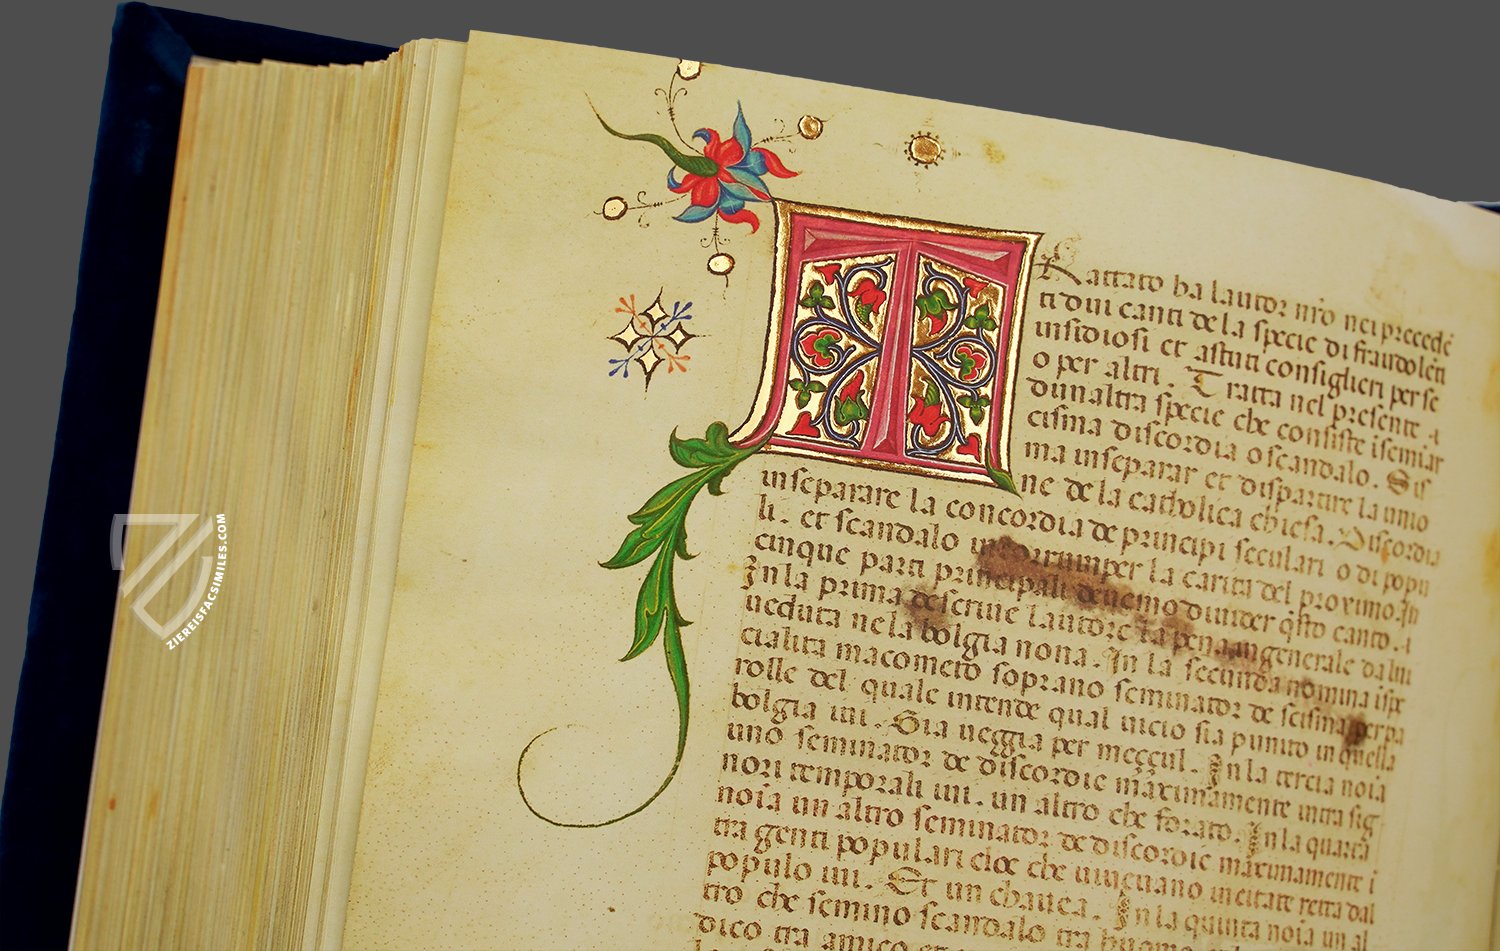 TRattato ha lautor nr̄o nei precedē
ti dui canti de la specie di fraudolēti
insidiosi et astuti consiglieri per se
o per altri. Tratta nel presente
dunaltra specie che consiste ī seminar
cisma discordia o scandalo. Sis
ma in separar et dispartire la unio
ne de la catholica chiesa. Discordia
in separare la concordia de principi seculari o di popu
li. et scandalo in corrumper la carita del proximo. In
cinque parti principali devemo divider q̄sto canto.
In la prima descrive lautore la pena in generale da lui
veduta ne la bolgia nona. In la secunda nomina ī spe
cialita macometo soprano seminator de scisma per pa
rolle del quale intende qual vicio sia punito in quella
bolgia ivi. Gia veggia per meççul. In la tercia noīa
uno seminator de discordie māximamente intra sig
nori temporali ivi. un altro che forato. In la quarta
noīa un altro seminator de discordie māximamente ī
tra genti populari cioe che vivevano in citate retta dal
populo ivi. Et un chavea. In la quinta noīa un al
tro che semino scandalo tra
dico tra amico et
ZIEREISFACSIMILES.COM